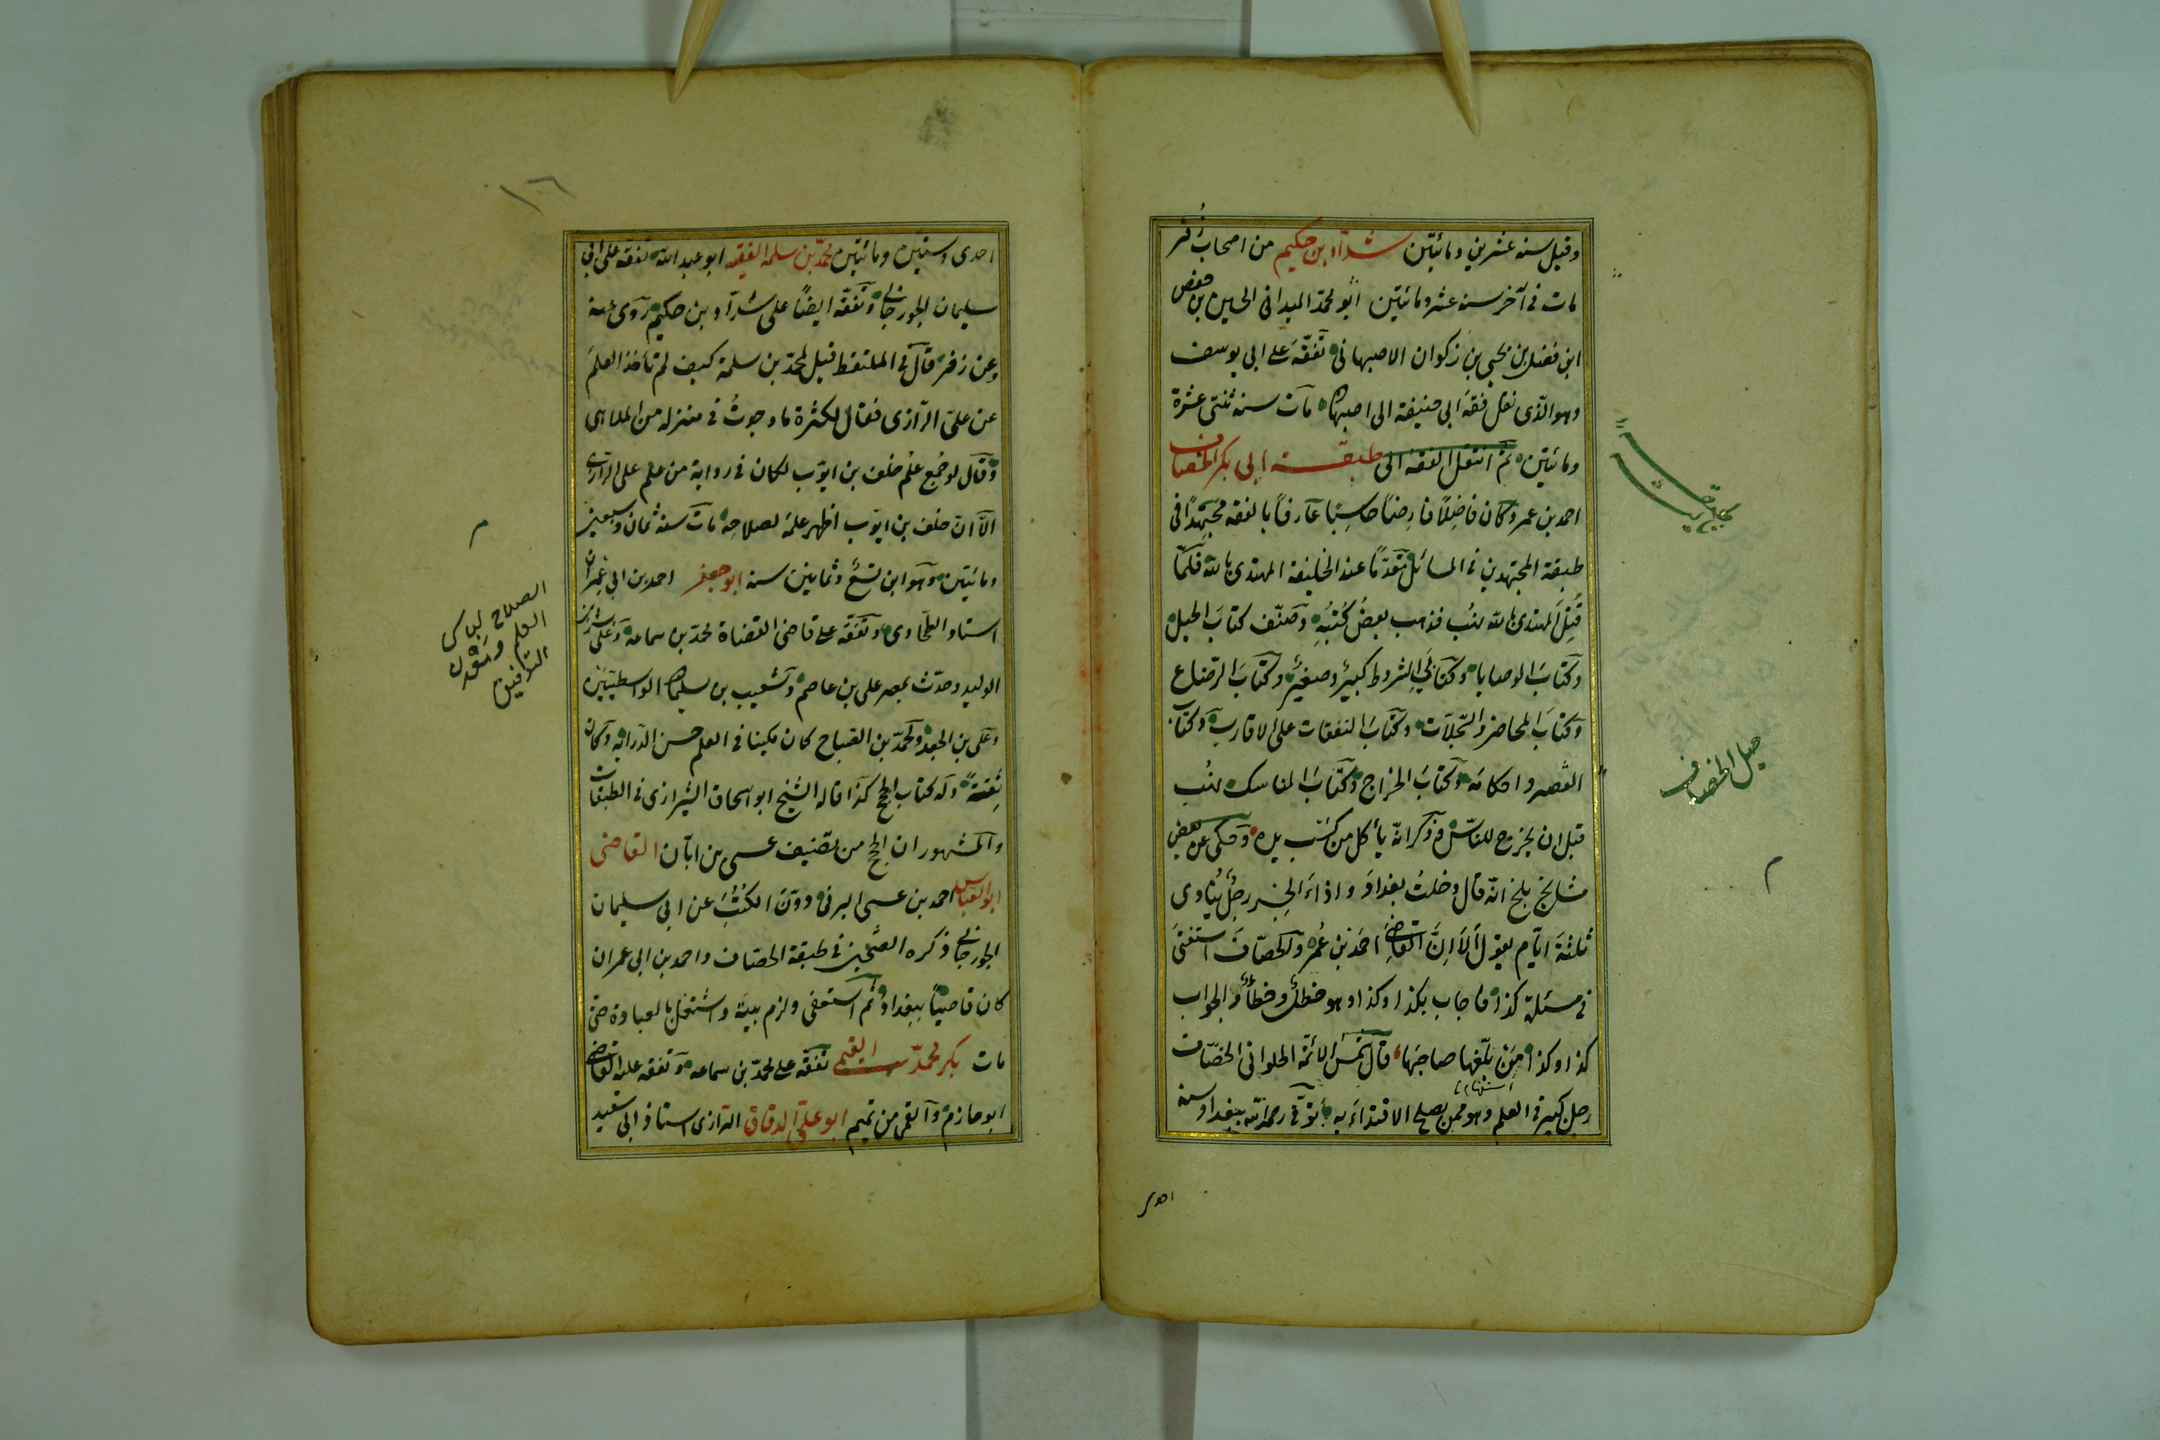 وقبل سنة عشرين ومائتين شداد بن حكيم من اصحاب زفر
مات في آخر سنة عشر ومائتين ابو محمد الميداني الحسين بن حفص
ابن فضل بن يحيى بن زكوان الاصبهاني تفقه على ابي يوسف
وهو الذي نقل فقه ابي حنيفة الى اصبهان مات سنة ثنتى عشرة
ومائتين ثم انتقل الفقه الى طبقة ابي بكر الخصاف
احمد بن عمر وكان فاضلا فارضا حاسبا عارفا بالفقه مجتهدا في
طبقة المجتهدين في المسائل مقدما عند الخليفة المهتدي بالله فلما
قتل المهتدي بالله نهب فذهب بعض كتبه وصنف كتاب الحيل
وكتاب الوصايا وكتابي الشروط كبير وصغير وكتاب الرضاع
وكتاب المحاضر والسجلات وكتاب النفقات على الاقارب وكتاب
القصر واحكامه وكتاب الخراج وكتاب المناسك نهب
قبل ان يخرج للناس وذكر انه يأكل من كسب يده وحكى عن بعض
مشايخ بلخ انه قال دخلت بغداد واذا على الجسر رجل ينادى
ثلثة ايام يقول الا ان القاضي احمد بن عمر والخصاف استفتى
في مسئلة كذا فاجاب بكذا وكذا وهو خطأ وخطأ والجواب
كذا وكذا من بلغها صاحبها قال شمس الائمة الحلواني الخصاف
رجل كبير في العلم وهو ممن يصلح الاقتداء به توفي رحمه الله ببغداد سنة
حيل الخصاف
م
احدى
١٦
احدى وستين ومائتين محمد بن سلمة الفقيه ابو عبد الله تفقه على ابي
سليمان الجورجاني وتفقه ايضا على شداد بن حكيم روى عنه
وعن زفر قال في الملتقط قيل لمحمد بن سلمة كيف لم تأخذ العلم
عن على الرازى فقال لكثرة ما وجدت في منزله من الملاهى
وقال لو جمع علم خلف بن ايوب لكان في رواية من علم على الرازى
الا ان خلف بن ايوب اظهر علمه لصلاحه مات سنة ثمان وسبعين
ومائتين وهو ابن تسع وثمانين سنة ابو جعفر احمد بن ابي عمران
استاد الطحاوى وتفقه على قاضى القضاة محمد بن سماعة وعلى بشر بن
الوليد وحدث بمصر على بن عاصم وشعيب بن سليمان الواسطيين
وعلى بن الجعد ومحمد بن الصباح كان مكينا في العلم حسن الدراية وكان
ثقة وله كتاب الحجج كذا قاله الشيخ ابو اسحاق الشيرازى في الطبقات
والمشهور ان الحجج من تصنيف عيسى بن ابان القاضى
ابو العباس احمد بن عيسى البرتى دون الكتب عن ابي سليمان
الجورجاني ذكره الصيمري في طبقة الخصاف واحمد بن ابي عمران
كان قاضيا ببغداد ثم استعفى ولزم بيته واشتغل بالعبادة حتى
مات بكر محمد القمى تفقه على محمد بن سماعة وتفقه عليه القاضى
ابو حازم والقمى من تميم ابو على الدقاق الرازى استاذ ابي سعيد
م
الصلاح لباس
العلم